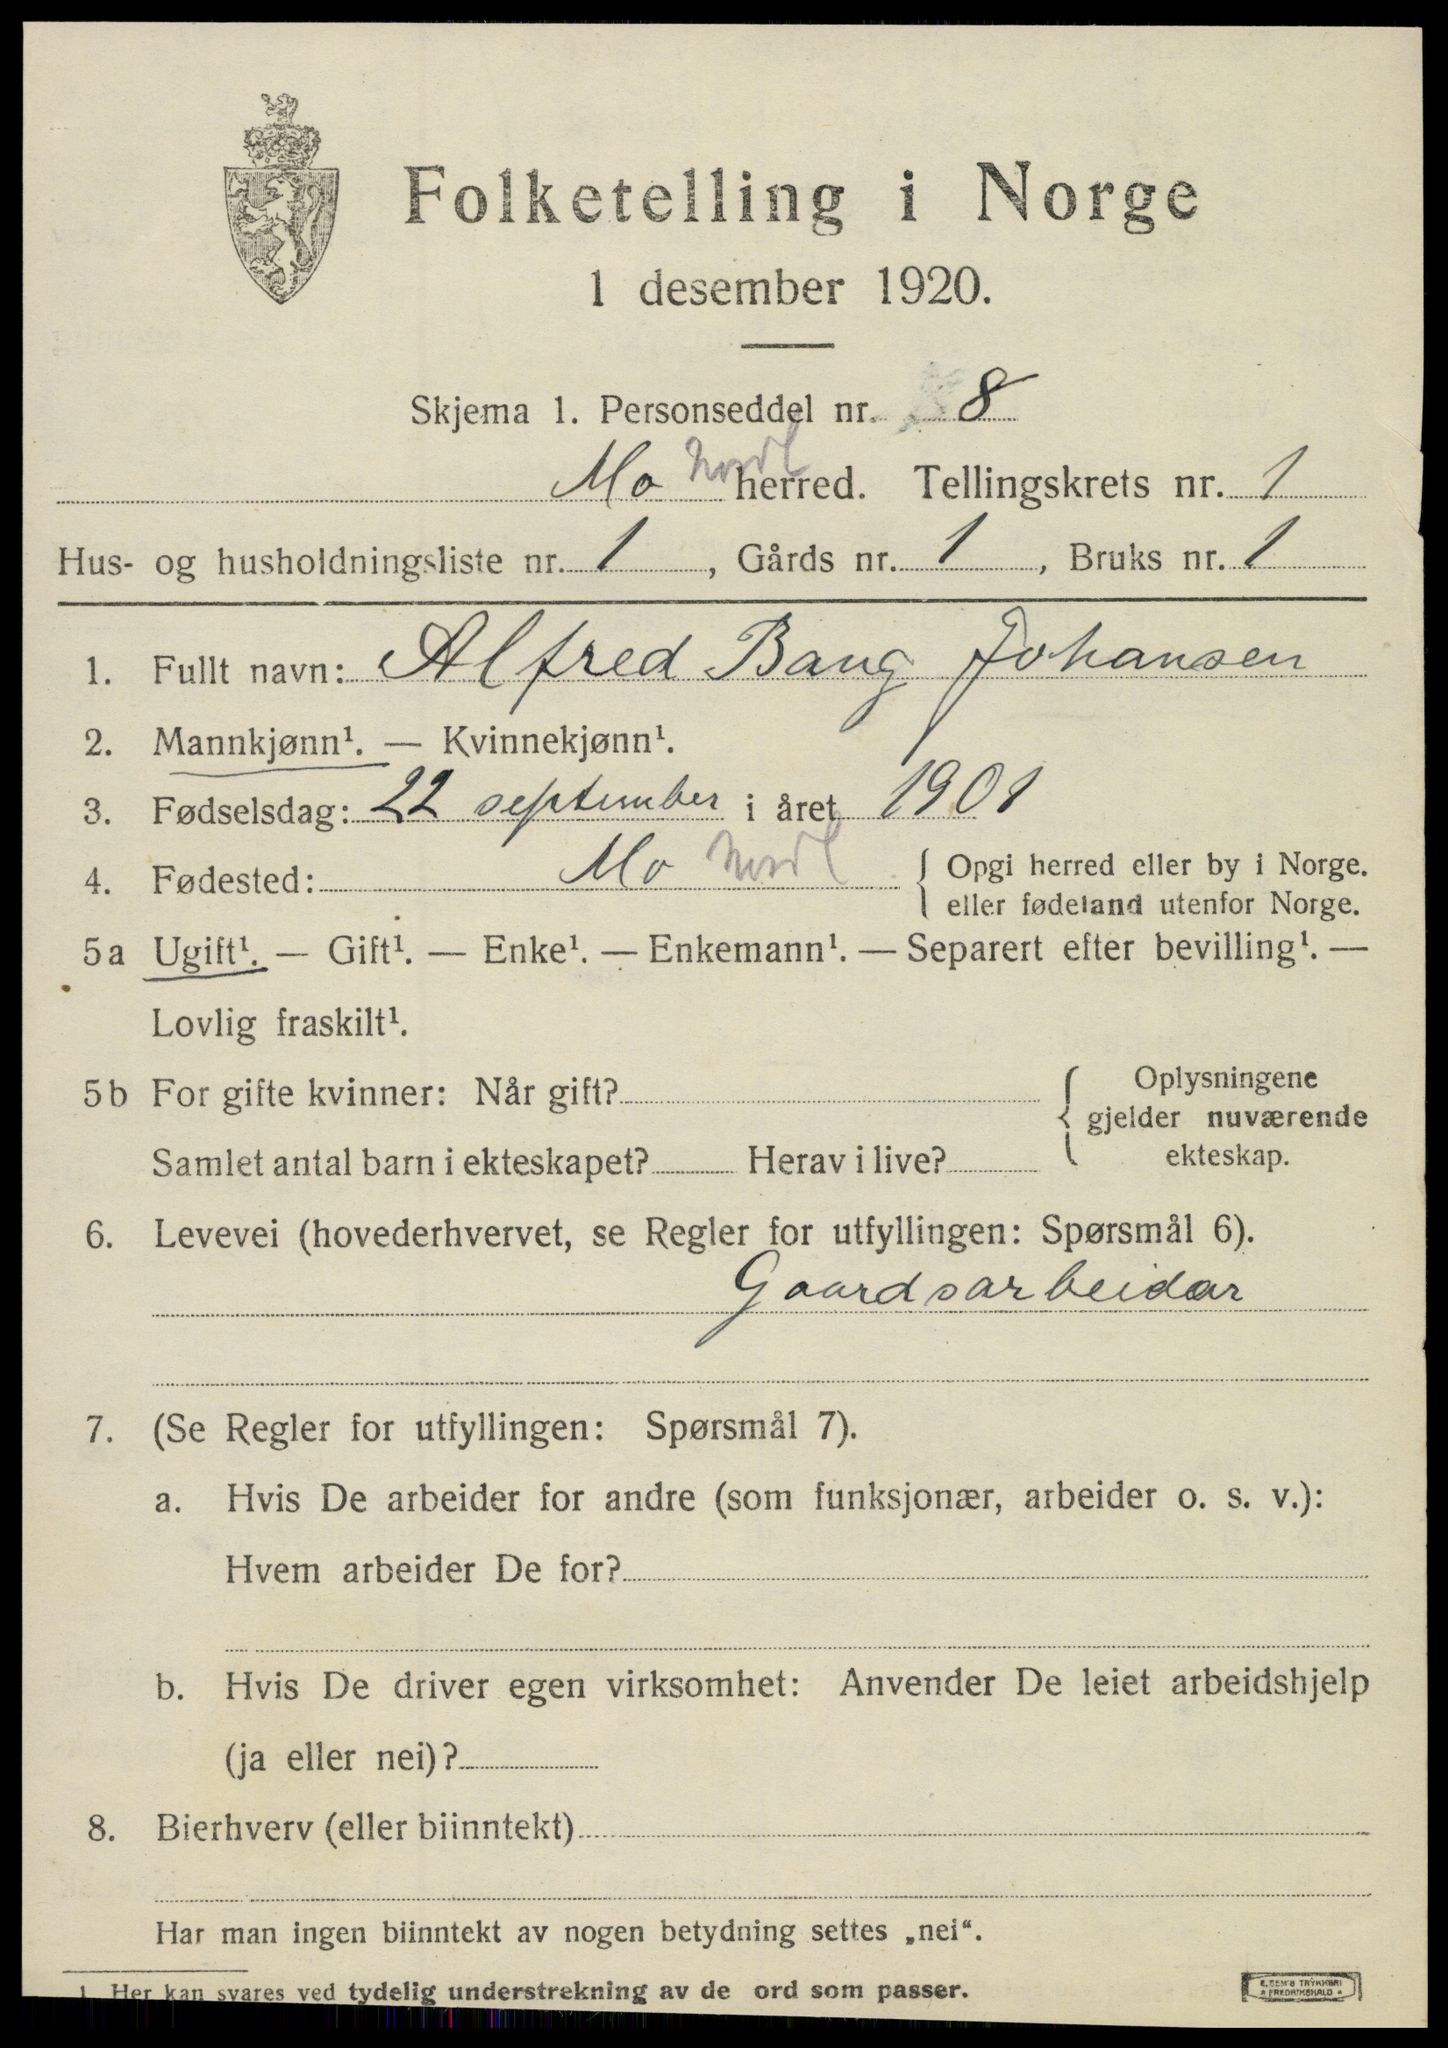 Folketelling i Norge
1 desember 1920.
Skjema 1. Personseddel nr. 8
Mo Nordl herred. Tellingskrets nr. 1
Hus- og husholdningsliste nr. 1, Gårds nr. 1, Bruks nr. 1
1. Fullt navn: Alfred Bang Johansen
2. Mannkjønn¹. — Kvinnekjønn¹.
3. Fødselsdag: 22 september i året 1901
4. Fødested: Mo Nordl { Opgi herred eller by i Norge.
eller fødeland utenfor Norge.
5a Ugift¹. — Gift¹. — Enke¹. — Enkemann¹. — Separert efter bevilling¹. —
Lovlig fraskilt¹.
5b For gifte kvinner: Når gift?
Samlet antal barn i ekteskapet? Herav i live?
{ Oplysningene
gjelder nuværende
ekteskap.
6. Levevei (hovederhvervet, se Regler for utfyllingen: Spørsmål 6).
Gaardsarbeidar
7. (Se Regler for utfyllingen: Spørsmål 7).
a. Hvis De arbeider for andre (som funksjonær, arbeider o. s. v.):
Hvem arbeider De for?
b. Hvis De driver egen virksomhet: Anvender De leiet arbeidshjelp
(ja eller nei)?
8. Bierhverv (eller biinntekt)
Har man ingen biinntekt av nogen betydning settes „nei“.
1 Her kan svares ved tydelig understrekning av de ord som passer.
E. SEM'S TRYKKERI
FREDRIKSHALD